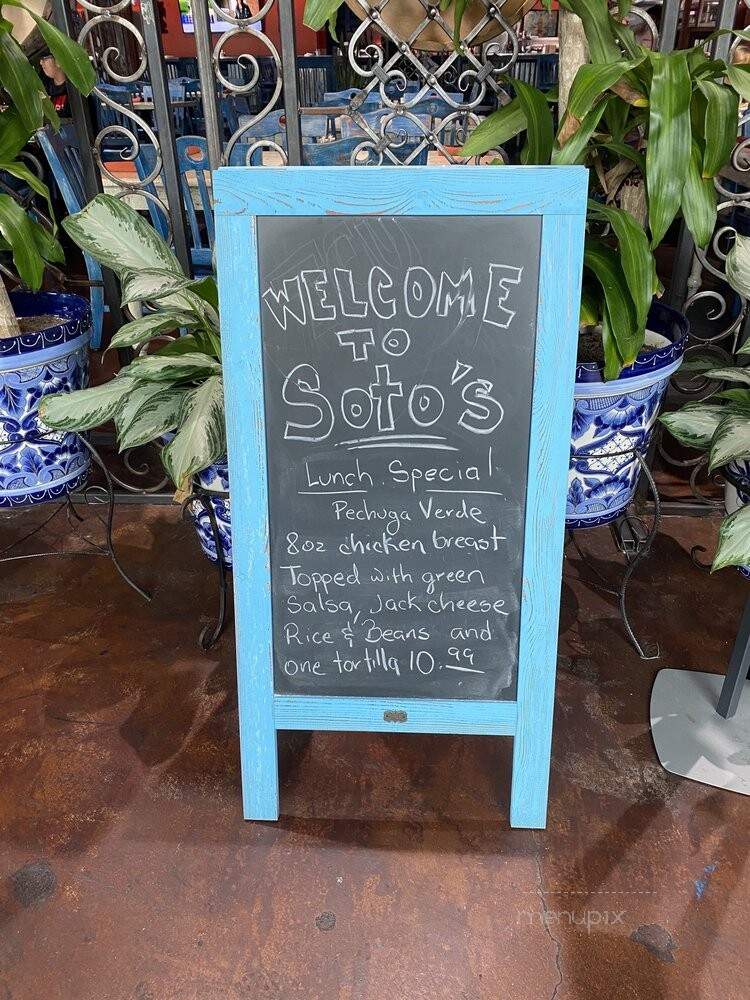 WELCOME
TO
Soto's
Lunch Special
Pechuga Verde
8oz chicken breast
Topped with green
Salsa, Jack cheese
Rice & Beans and
one tortilla 10.99
menupix